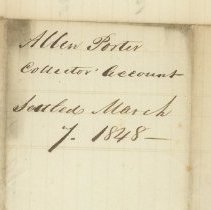 Allen Porter
Collector Account
Settled March
7. 1848—